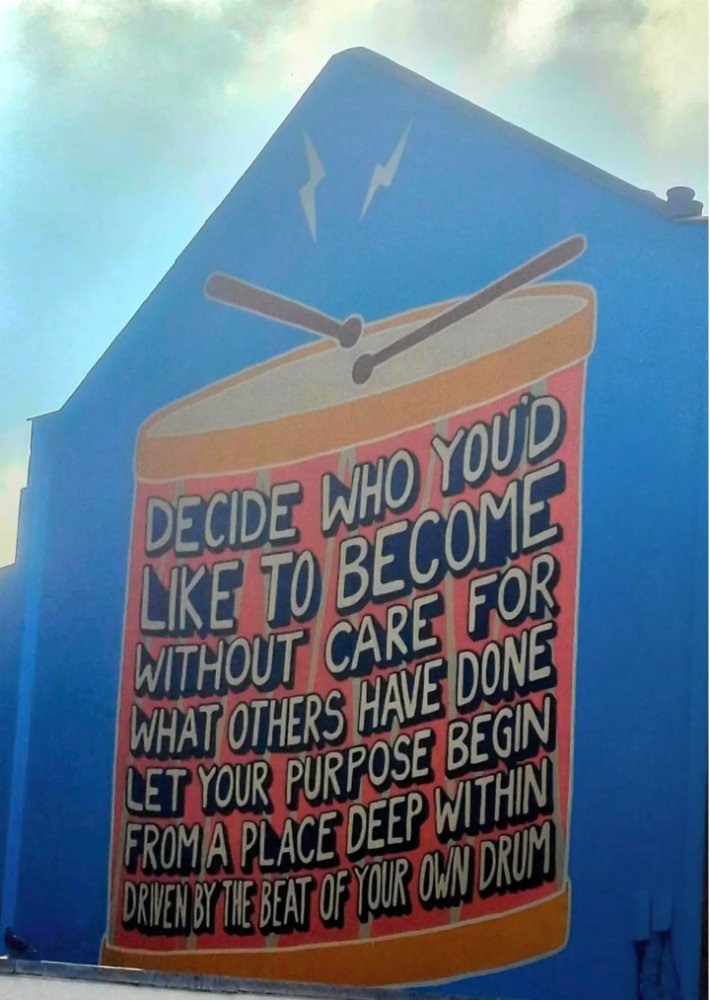 DECIDE WHO YOU'D
LIKE TO BECOME
WITHOUT CARE FOR
WHAT OTHERS HAVE DONE
LET YOUR PURPOSE BEGIN
FROM A PLACE DEEP WITHIN
DRIVEN BY THE BEAT OF YOUR OWN DRUM